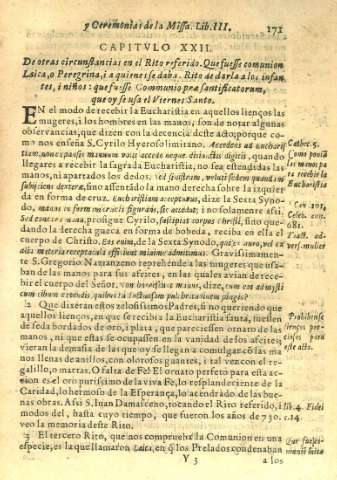 y Ceremonias de la Missa. Lib. III. 171
CAPITVLO XXII.
De otras circunstancias en el Rito referido. Que fuesse comunion
Laica, o Peregrina, i a quienes se daba. Rito de darla a los infan-
tes, i niños: que fuesse Communio præsantificatorum,
que oy se usa el Viernes Santo.
EN el modo de recibir la Eucharistia en aquellos lienços las
mugeres, i los hombres en las manos, son de notar algunas
observancias, que dizen con la decencia deste acto, porque co-
mo nos enseña S. Cyrilo Hyerosolimitano. Accedens ad eucharis
tiam, non expansis manuum volis accede neque disiunctis digitis, quando
llegares a recibir la sagrada Eucharistia, no sea estendidas las
manos, ni apartados los dedos. sed sinistram, veluti sedem quandam
subijcias dexteræ, sino assentando la mano derecha sobre la izquier
da en forma de cruz. Eucharistiam accepturus, dize la Sexta Syno-
do, manus in formam crucis figurans, sic accedat; i no solamente assi.
Sed concava manu, prosigue Cyrilo, suscipias corpus christi, sino que-
dando la derecha gueca en forma de bobeda, reciba en ella el
cuerpo de Christo. Eos enim, de la Sexta Synodo, qui ex auro, vel ex
alia materia receptacula efficiunt nullatenus admittimus. Gravissimamente
S. Gregorio Nazianzeno reprehende a las mugeres que usa-
ban de las manos para sus afeites, en las quales avian de rece-
bir el cuerpo del Señor.
2 Que dizeran estos zelosissimos Padres, si no queriendo que
aquellos lienços, en que se recibia la Eucharistia santa, fuessen
de seda bordados de oro, i plata, que pareciessen ornato de las
manos, ni que estas se ocupassen en la vanidad de los afeites,
vieran la demasia de las que oy se llegan a comulgar co las ma
nos llenas de anillos, con olorosos guantes, i tal vez con el re-
galillo, o martas. O falta de Fè! El ornato perfeto para esta ac-
cion es el oro purissimo de la viva Fè, lo resplandeciente de la
Caridad, lo hermoso de la Esperança, lo acendrado de las bue-
nas obras. Assi S. Iuan Damasceno, tocando el Rito referido, i
modos del, hasta cuyo tiempo, que fueron los años de 730.
veo la memoria deste Rito.
3 El tercero Rito, que nos comprueba la Comunion en una
especie, es la que llamaron Laica, en q los Prelados condenaban
Y 3 a los
Cathec. 5.
Como ponia
las manos pa
ra recebir la
Eucharistia
Can. 101.
Prohibense
lienços pre-
ciosos para
este acto.
lib. 4. Fidei
c. 14.
Que fuesse co-